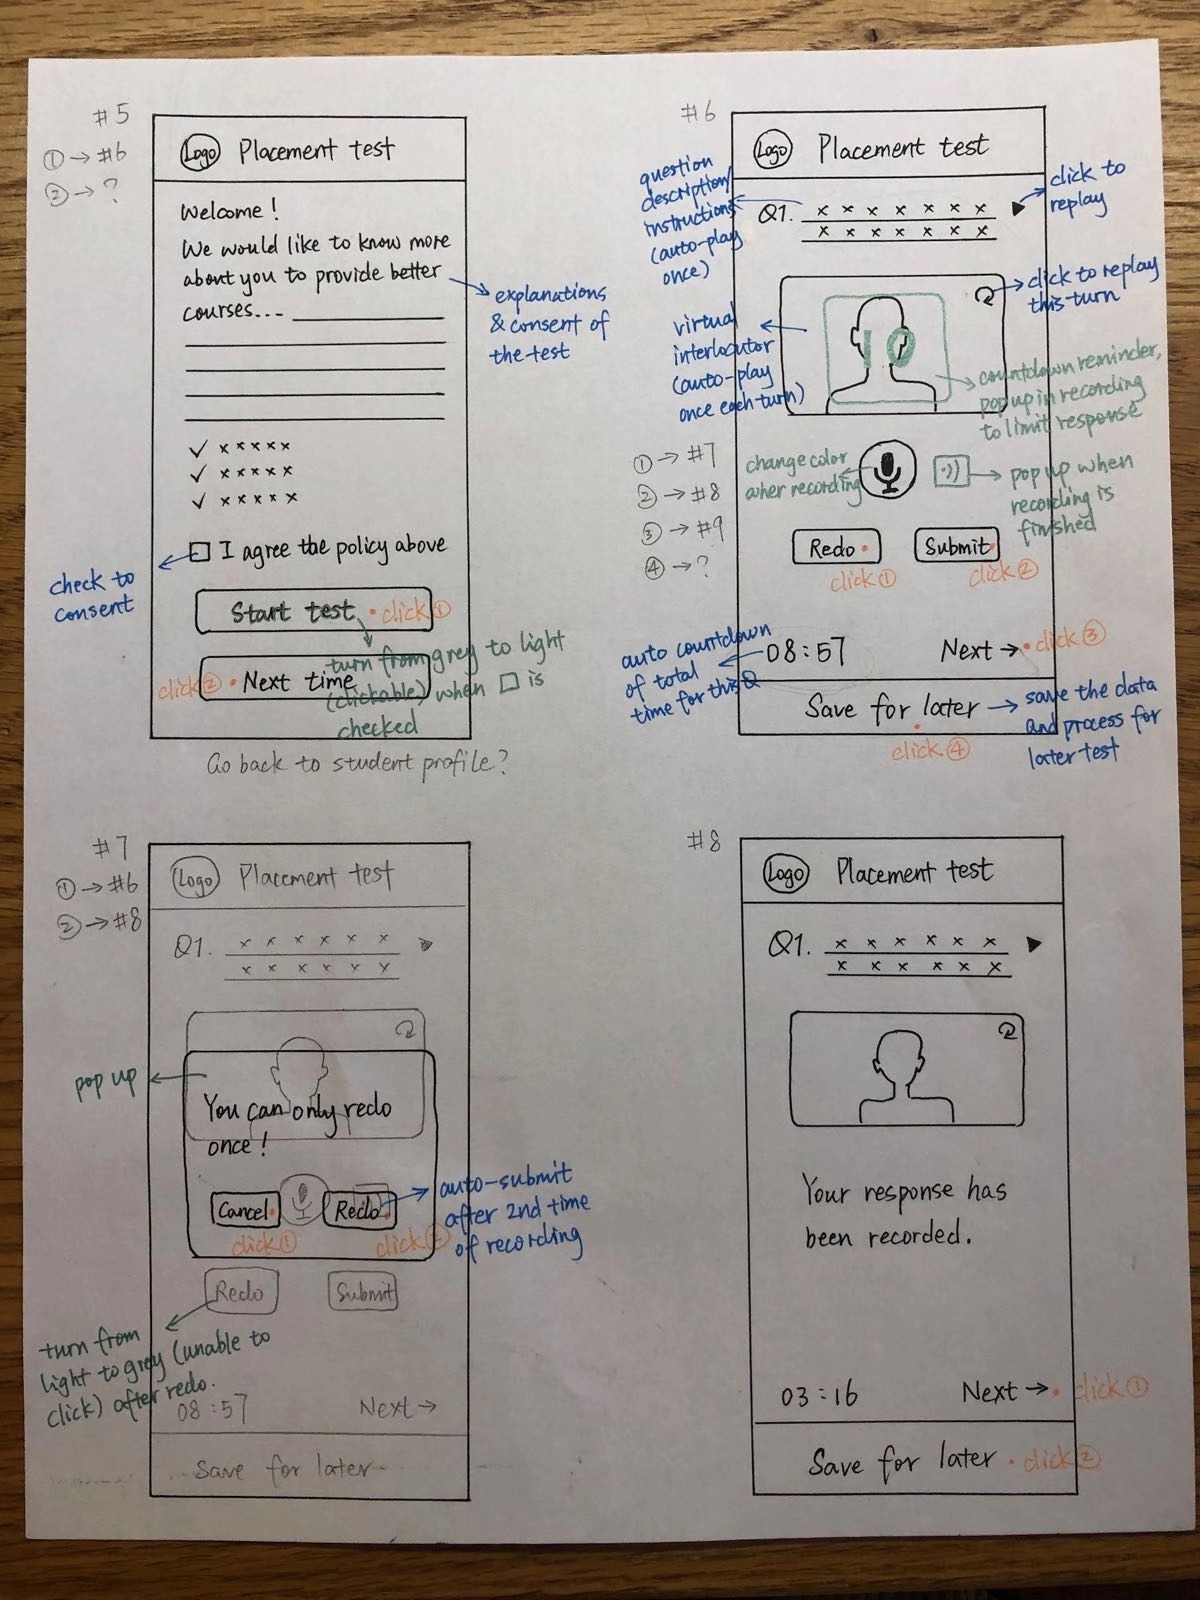 #5
① → #6
② → ?
Logo Placement test
Welcome!
We would like to know more
about you to provide better
courses...
explanations
& consent of
the test
✓ x x x x x
✓ x x x x x
✓ x x x x x
I agree the policy above
check to
consent
Start test • click ①
turn from grey to light
(clickable) when □ is
checked
click ② • Next time
Go back to student profile?
#6
Logo Placement test
question
description/
instructions
(auto-play
once)
Q1. x x x x x x x
x x x x x x x
click to
replay
click to replay
this turn
virtual
interlocutor
(auto-play
once each turn)
10
countdown reminder,
pop up in recording
to limit response
① → #7
② → #8
③ → #9
④ → ?
change color
when recording
pop up when
recording is
finished
Redo •
click ①
Submit •
click ②
auto countdown
of total
time for this Q
08:57
Next → • click ③
Save for later
click ④
save the data
and process for
later test
#7
① → #6
② → #8
Logo Placement test
Q1. x x x x x x
x x x x x x
pop up
You can only redo
once!
Cancel •
click ①
Redo •
click ②
auto-submit
after 2nd time
of recording
Redo
Submit
turn from
light to grey (unable to
click) after redo.
08:57
Next →
Save for later
#8
Logo Placement test
Q1. x x x x x x
x x x x x x
Your response has
been recorded.
03:16
Next → • click ①
Save for later • click ②